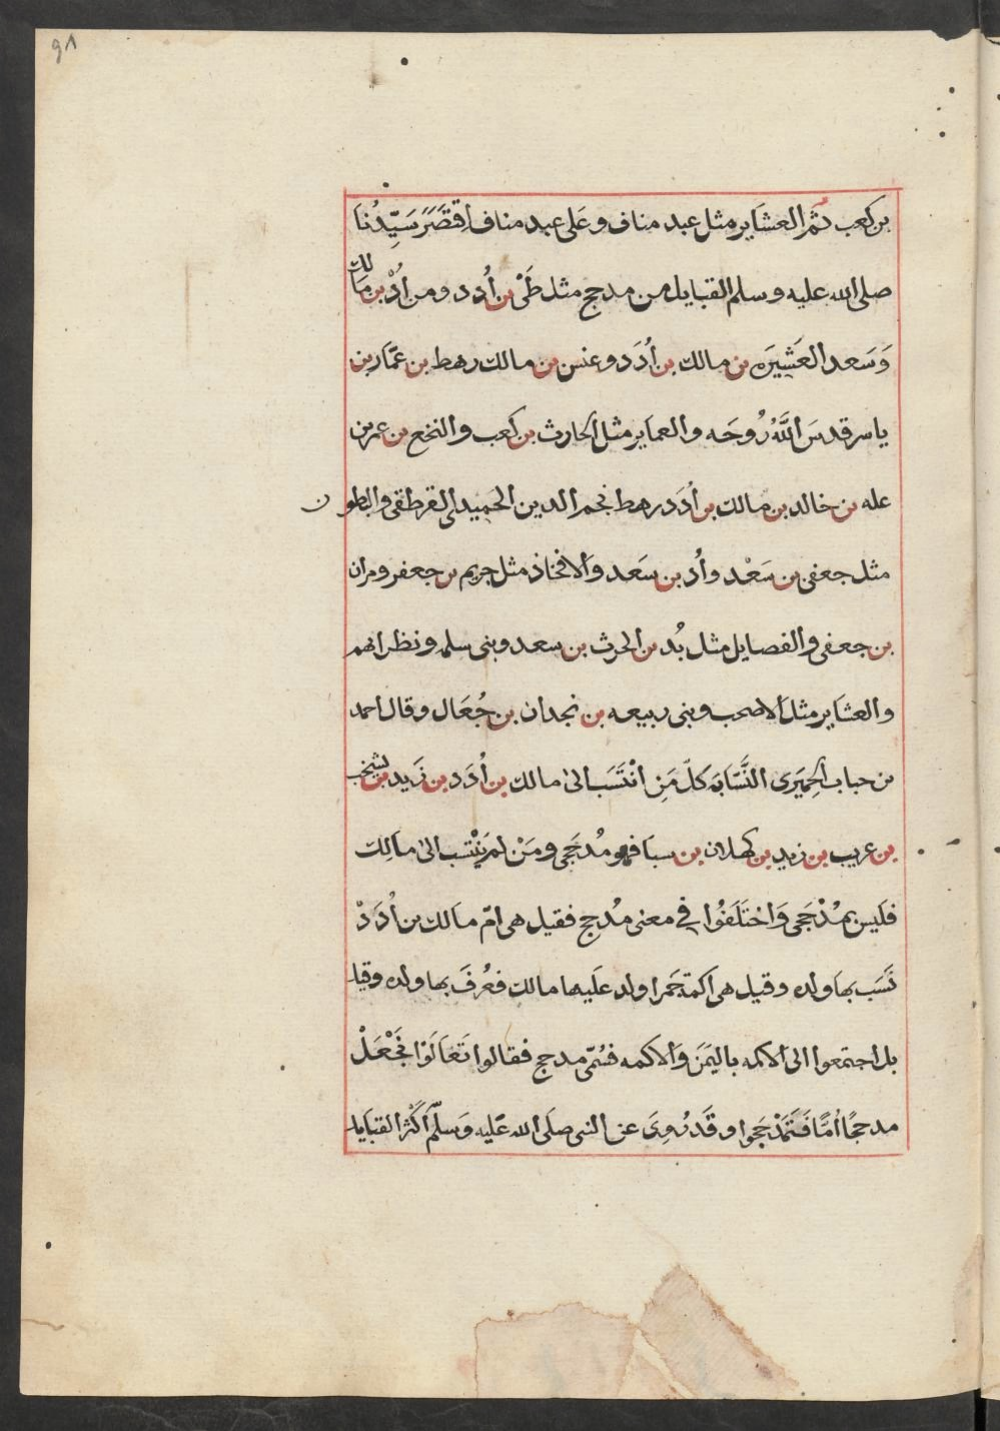 ٩٨
بن كعب ثم العشاير مثل عبد مناف وعلى عبد مناف اقتصر سيدنا
صلى الله عليه وسلم القبايل من مدجج مثل طي بن أدد ومن أدد بن مالك
وسعد العشيره بن مالك بن أدد وعنس بن مالك رهط بن عمار بن
ياسر قدس الله روحه والعماير مثل الحارث بن كعب والنخع بن عمر بن
عله بن خالد بن مالك بن أدد رهط نجم الدين الحميد القرطقى والبطون
مثل جعفى بن سعد وأد بن سعد والافخاذ مثل حريم بن جعفر ومران
بن جعفى والفصايل مثل بُد بن الحرث بن سعد وبنى سلمه ونظرائهم
والعشاير مثل الاصحب وبنى ربيعه بن نجدان بن جُعَال وقال احمد
بن حباب الحِميَرى النَّسّابَه كلّ مَنِ انْتَسَبَ الىٰ مالك بن أُدَد بن زَيد بن يشخب
بن عريب بن زيد بن كهلان بن سبا فهو مُدجَجى ومَنْ لم يَنْتسب الىٰ مالِك
فليس بمُدْجَجى وَاختَلَفُوا في معنى مُدجج فقيل هى امّ مالك بن أُدَدْ
نَسَب بها ولده وقيل هى اكمة حَمرا ولد عَليها مالك فعُرفَ بها ولده وقيل
بل اجتمعوا الى الاكمه باليَمَن وَالاكمه فسُمّى مدجج فقالوا تَعَالَوْا نَجْعَلْ
مدججًا أمًّا فَتَمَذْجَجوا وقَد رُوِىَ عن النبى صلَى الله عَليه وَسلّم أكثر القبَايل